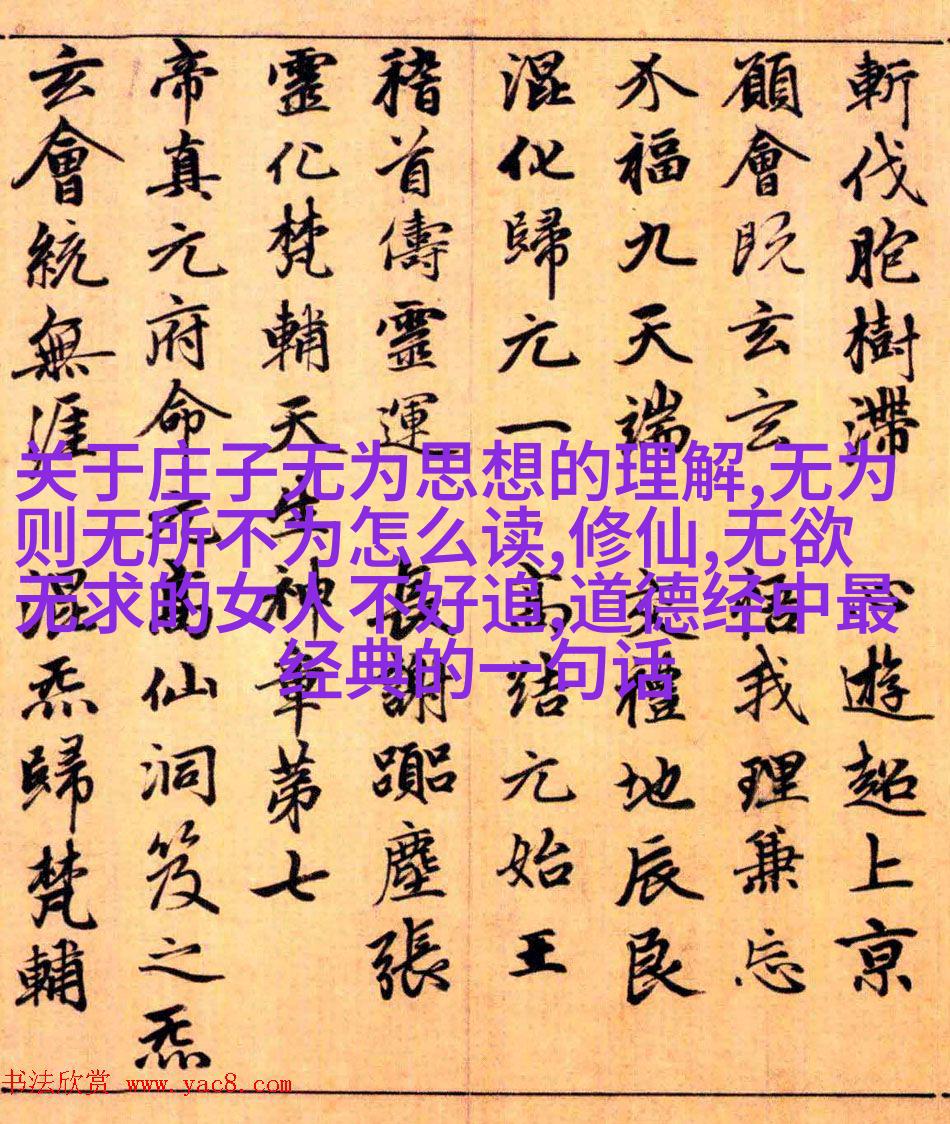 斬伐胞樹滯 心遊超上京
願會既玄玄 悟我理兼忘
介福九天端 交禮地辰良
混化歸元一 高結元始王
稽首儔靈運 長謝躡塵張
靈化梵輔天生神章第七
帝真元府命元高仙洞笈之炁
玄會統無涯 混炁歸梵輔
关于庄子无为思想的理解,无为
则无所不为怎么读,修仙,无欲
无求的女人不好追,道德经中最
经典的一句话
书法欣赏 www.yac8.com